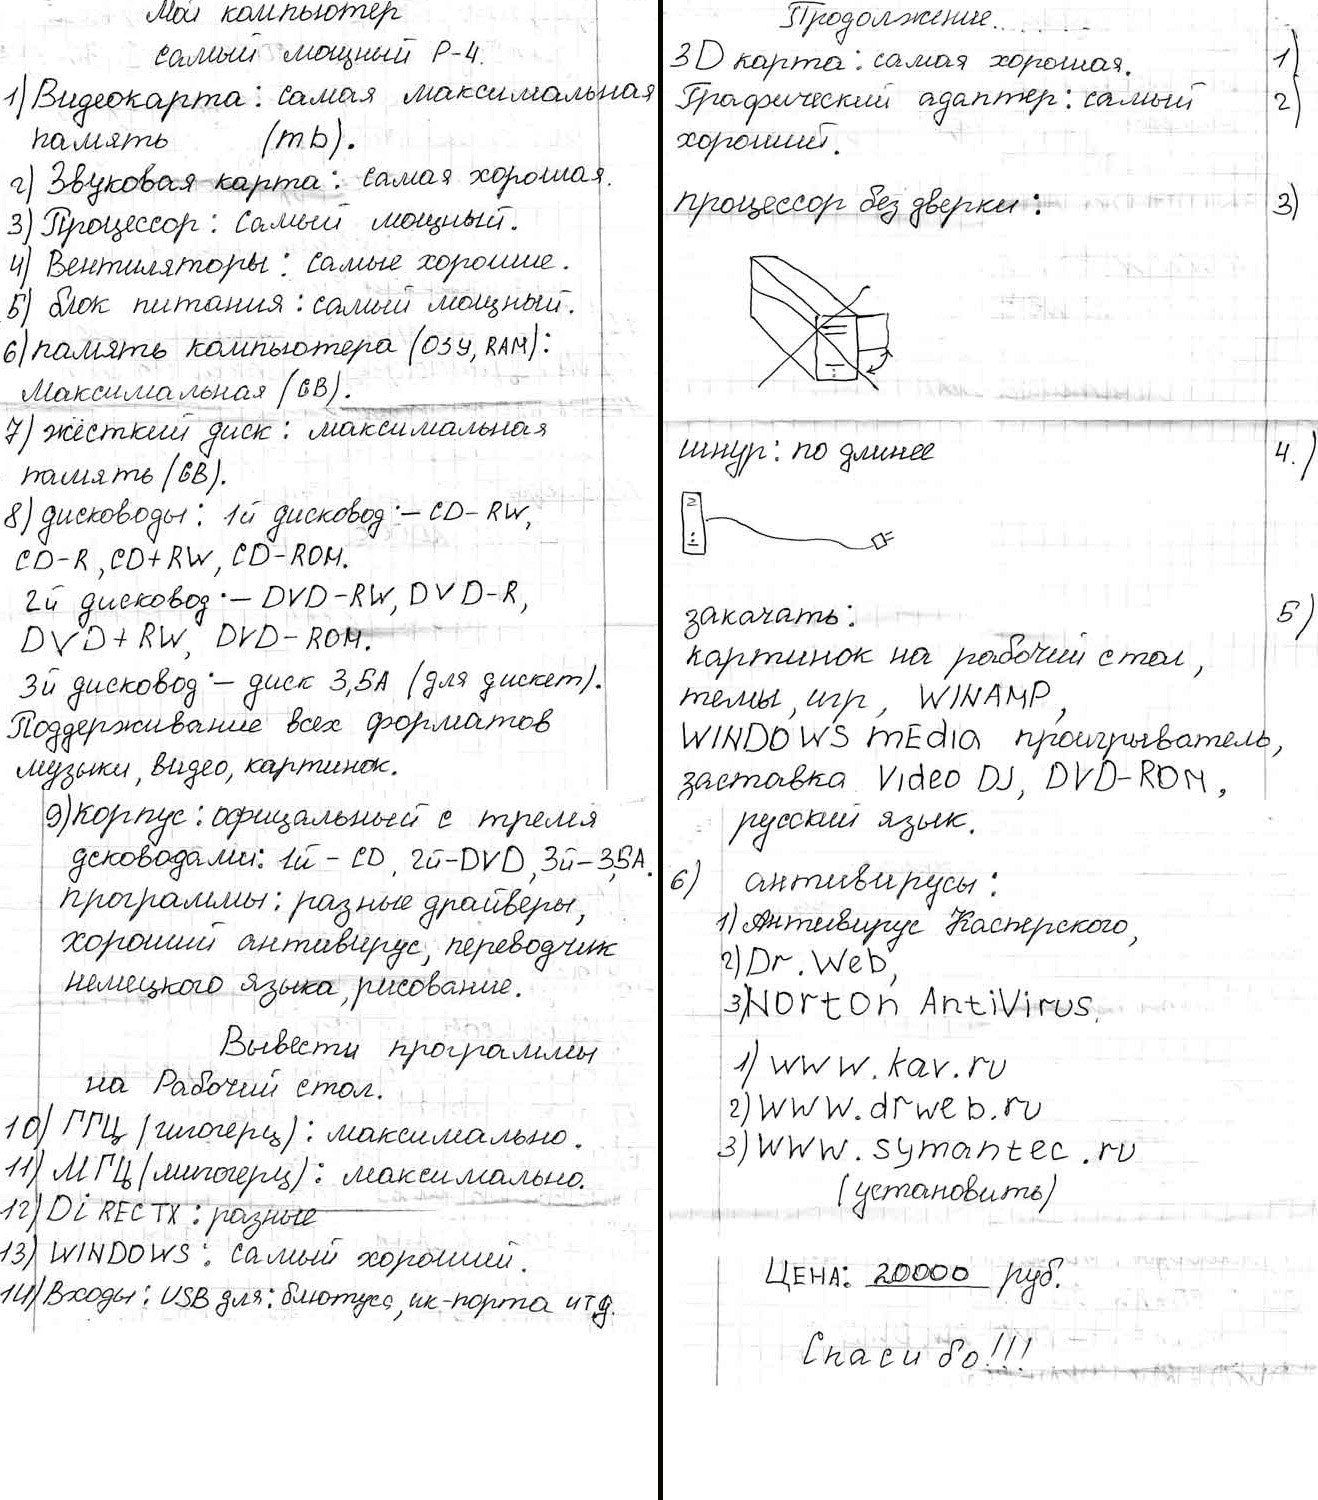 Мой компьютер
самый мощный P-4.
1) Видеокарта: самая максимальная
память (mb).
2) Звуковая карта: самая хорошая.
3) Процессор: самый мощный.
4) Вентиляторы: самые хорошие.
5) блок питания: самый мощный.
6) память компьютера (ОЗУ, RAM):
Максимальная (GB).
7) жёсткий диск: максимальная
память (GB).
8) дисководы: 1й дисковод:– CD-RW,
CD-R, CD+RW, CD-ROM.
2й дисковод:– DVD-RW, DVD-R,
DVD+RW, DVD-ROM.
3й дисковод:– диск 3,5A (для дискет).
Поддерживание всех форматов
музыки, видео, картинок.
9) корпус: офицальный с тремя
дсководами: 1й – CD, 2й-DVD, 3й-3,5A.
программы: разные драйверы,
хороший антивирус, переводчик
немецкого языка, рисование.
Вывести программы
на Рабочий стол.
10) ГГЦ (гигогерц): максимально.
11) МГЦ (мигогерц): максимально.
12) DiRECTX: разные
13) WINDOWS: самый хороший.
14) Входы: USB для: блютуса, ик-порта итд.
Продолжение......
3D карта: самая хорошая. 1)
Графический адаптер: самый 2)
хороший.
процессор без дверки: 3)
шнур: по длинее 4.)
закачать: 5)
картинок на рабочий стол,
темы, игр, WINAMP,
WINDOWS mEdia проигрыватель,
заставка Video DJ, DVD-ROM,
русский язык.
6) антивирусы:
1) Антивирус Касперского,
2) Dr. Web,
3) Norton AntiVirus.
1) www.kav.ru
2) www.drweb.ru
3) www.symantec.ru
(установить)
ЦЕНА: 20000 руб.
Спасибо!!!